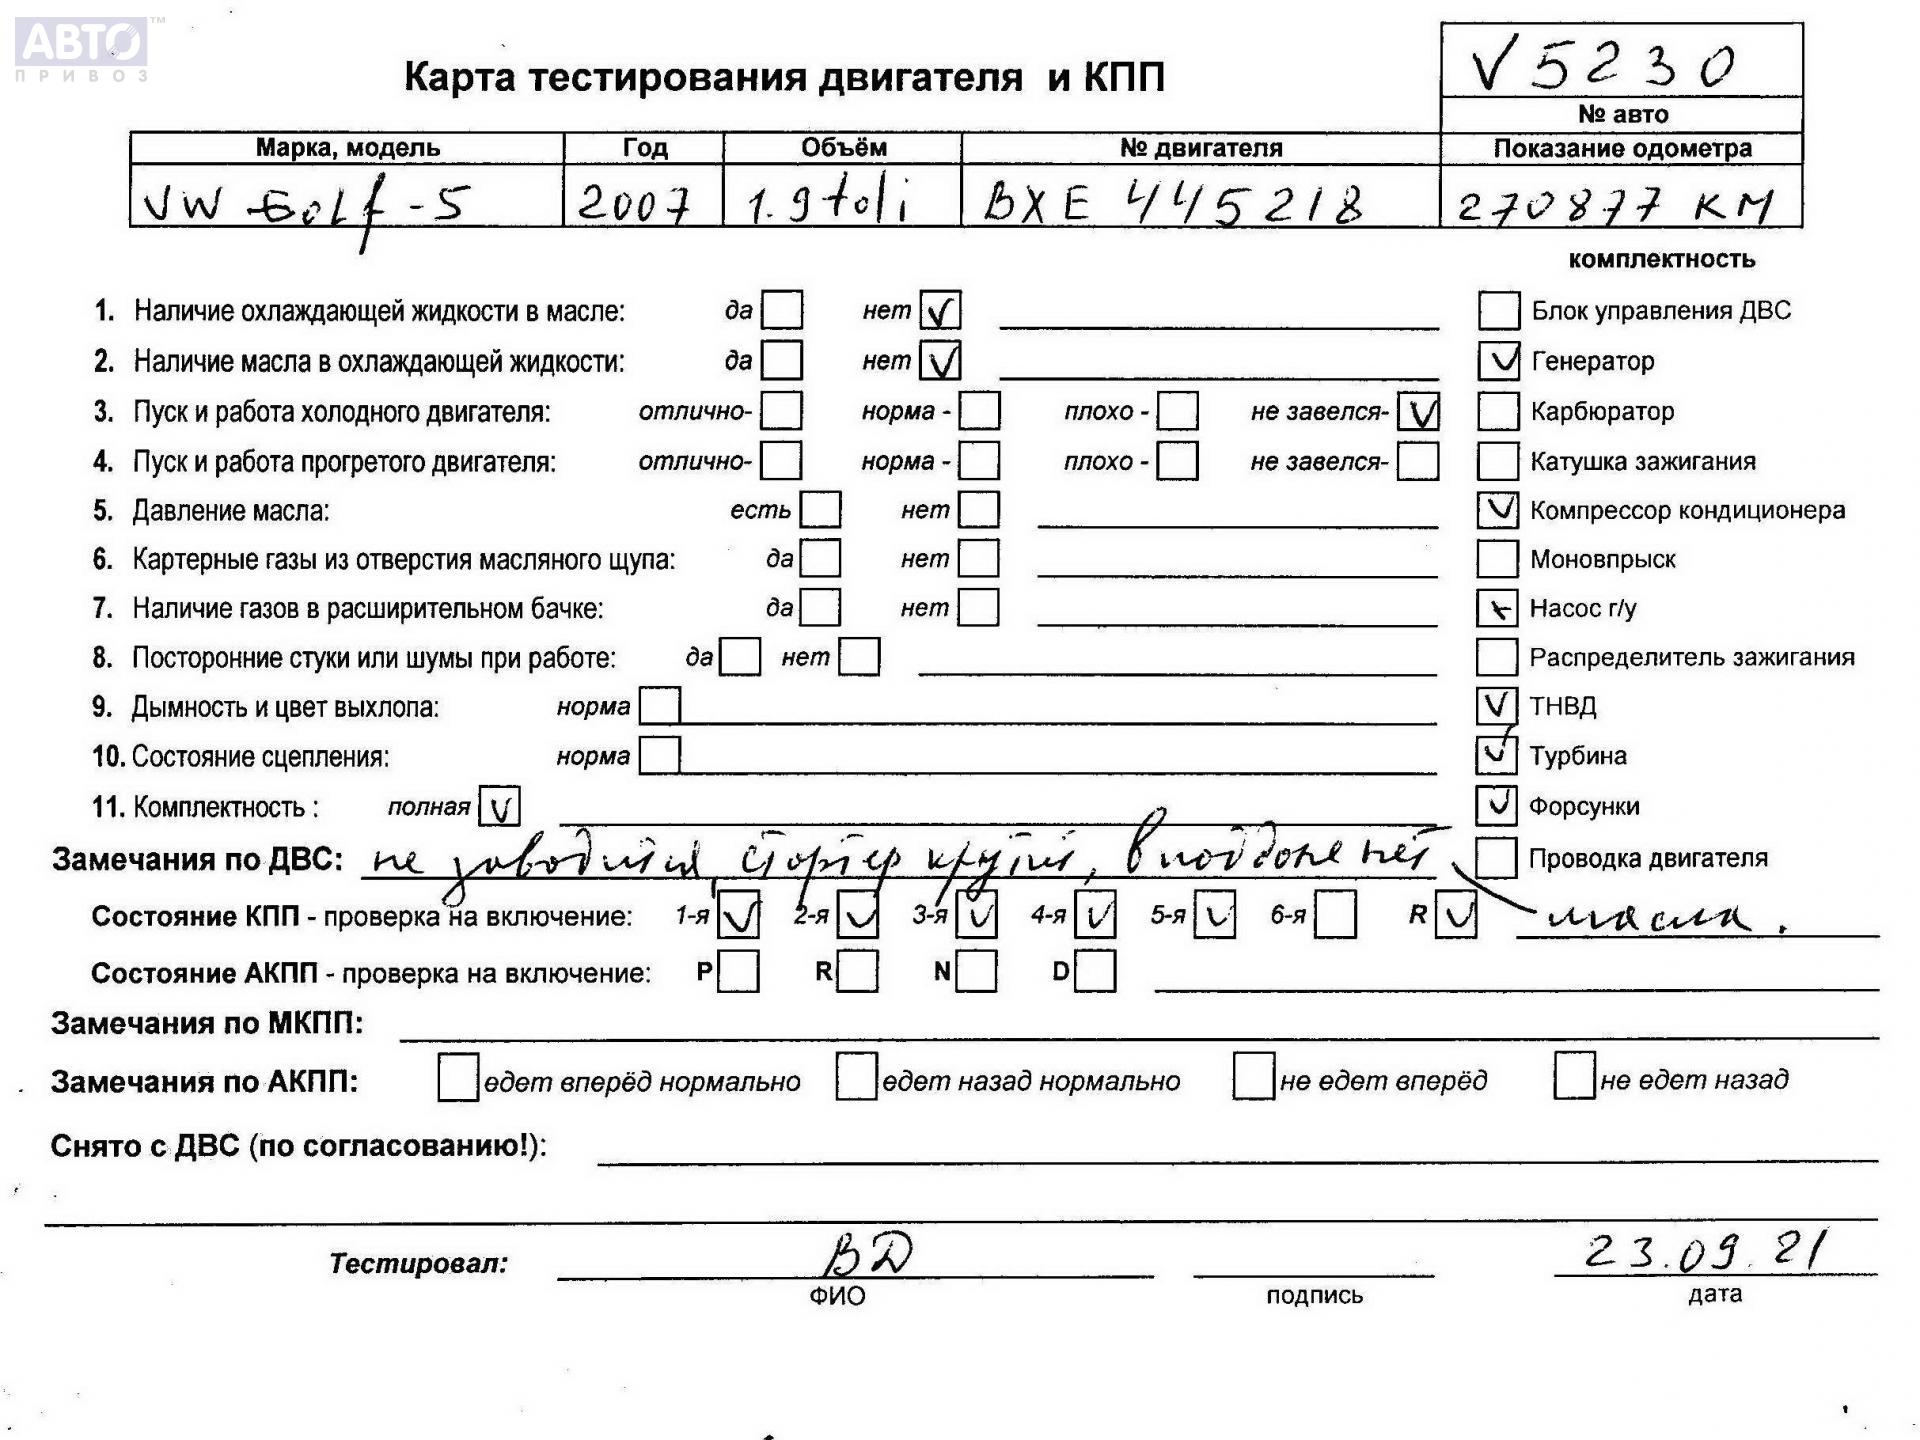 АВТО™
ПРИВОЗ
Карта тестирования двигателя и КПП
V5230
№ авто
Марка, модель Год Объём № двигателя Показание одометра
VW Golf-5 2007 1.9 tdi BXE 445218 270877 KM
комплектность
1. Наличие охлаждающей жидкости в масле: да нет ✓ Блок управления ДВС
2. Наличие масла в охлаждающей жидкости: да нет ✓ ✓ Генератор
3. Пуск и работа холодного двигателя: отлично- норма - плохо - не завелся- ✓ Карбюратор
4. Пуск и работа прогретого двигателя: отлично- норма - плохо - не завелся- Катушка зажигания
5. Давление масла: есть нет ✓ Компрессор кондиционера
6. Картерные газы из отверстия масляного щупа: да нет Моновпрыск
7. Наличие газов в расширительном бачке: да нет Насос г/у
8. Посторонние стуки или шумы при работе: да нет Распределитель зажигания
9. Дымность и цвет выхлопа: норма ✓ ТНВД
10. Состояние сцепления: норма ✓ Турбина
11. Комплектность : полная ✓ ✓ Форсунки
Замечания по ДВС: не заводится, стартер крутит, в поддоне нет Проводка двигателя
Состояние КПП - проверка на включение: 1-я ✓ 2-я ✓ 3-я ✓ 4-я ✓ 5-я ✓ 6-я R ✓ масла.
Состояние АКПП - проверка на включение: P R N D
Замечания по МКПП:
Замечания по АКПП: едет вперёд нормально едет назад нормально не едет вперёд не едет назад
Снято с ДВС (по согласованию!):
Тестировал: ВД 23.09.21
ФИО подпись дата